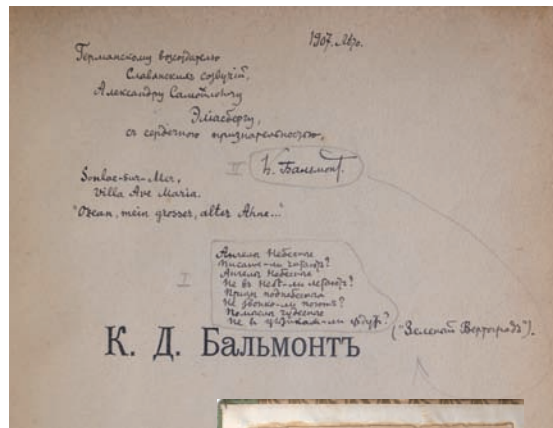 1907. Лѣто.
Германскому возсоздателю
Славянскихъ созвучій,
Александру Самойловичу
Эліасбергу,
съ сердечною признательностью,
II К. Бальмонт.
Soulac-sur-Mer,
Villa Ave Maria.
"Ozean, mein grosser, alter Ahne..."
I
Ангелы Небесные
Писанье-ли читаютъ?
Ангелы Небесные
Не въ Небѣ-ли летаютъ?
Птицы поднебесныя
Не звонко-ли поютъ?
Помыслы чудесные
Не въ
("Зеленый Вертоградъ").
К. Д. Бальмонтъ